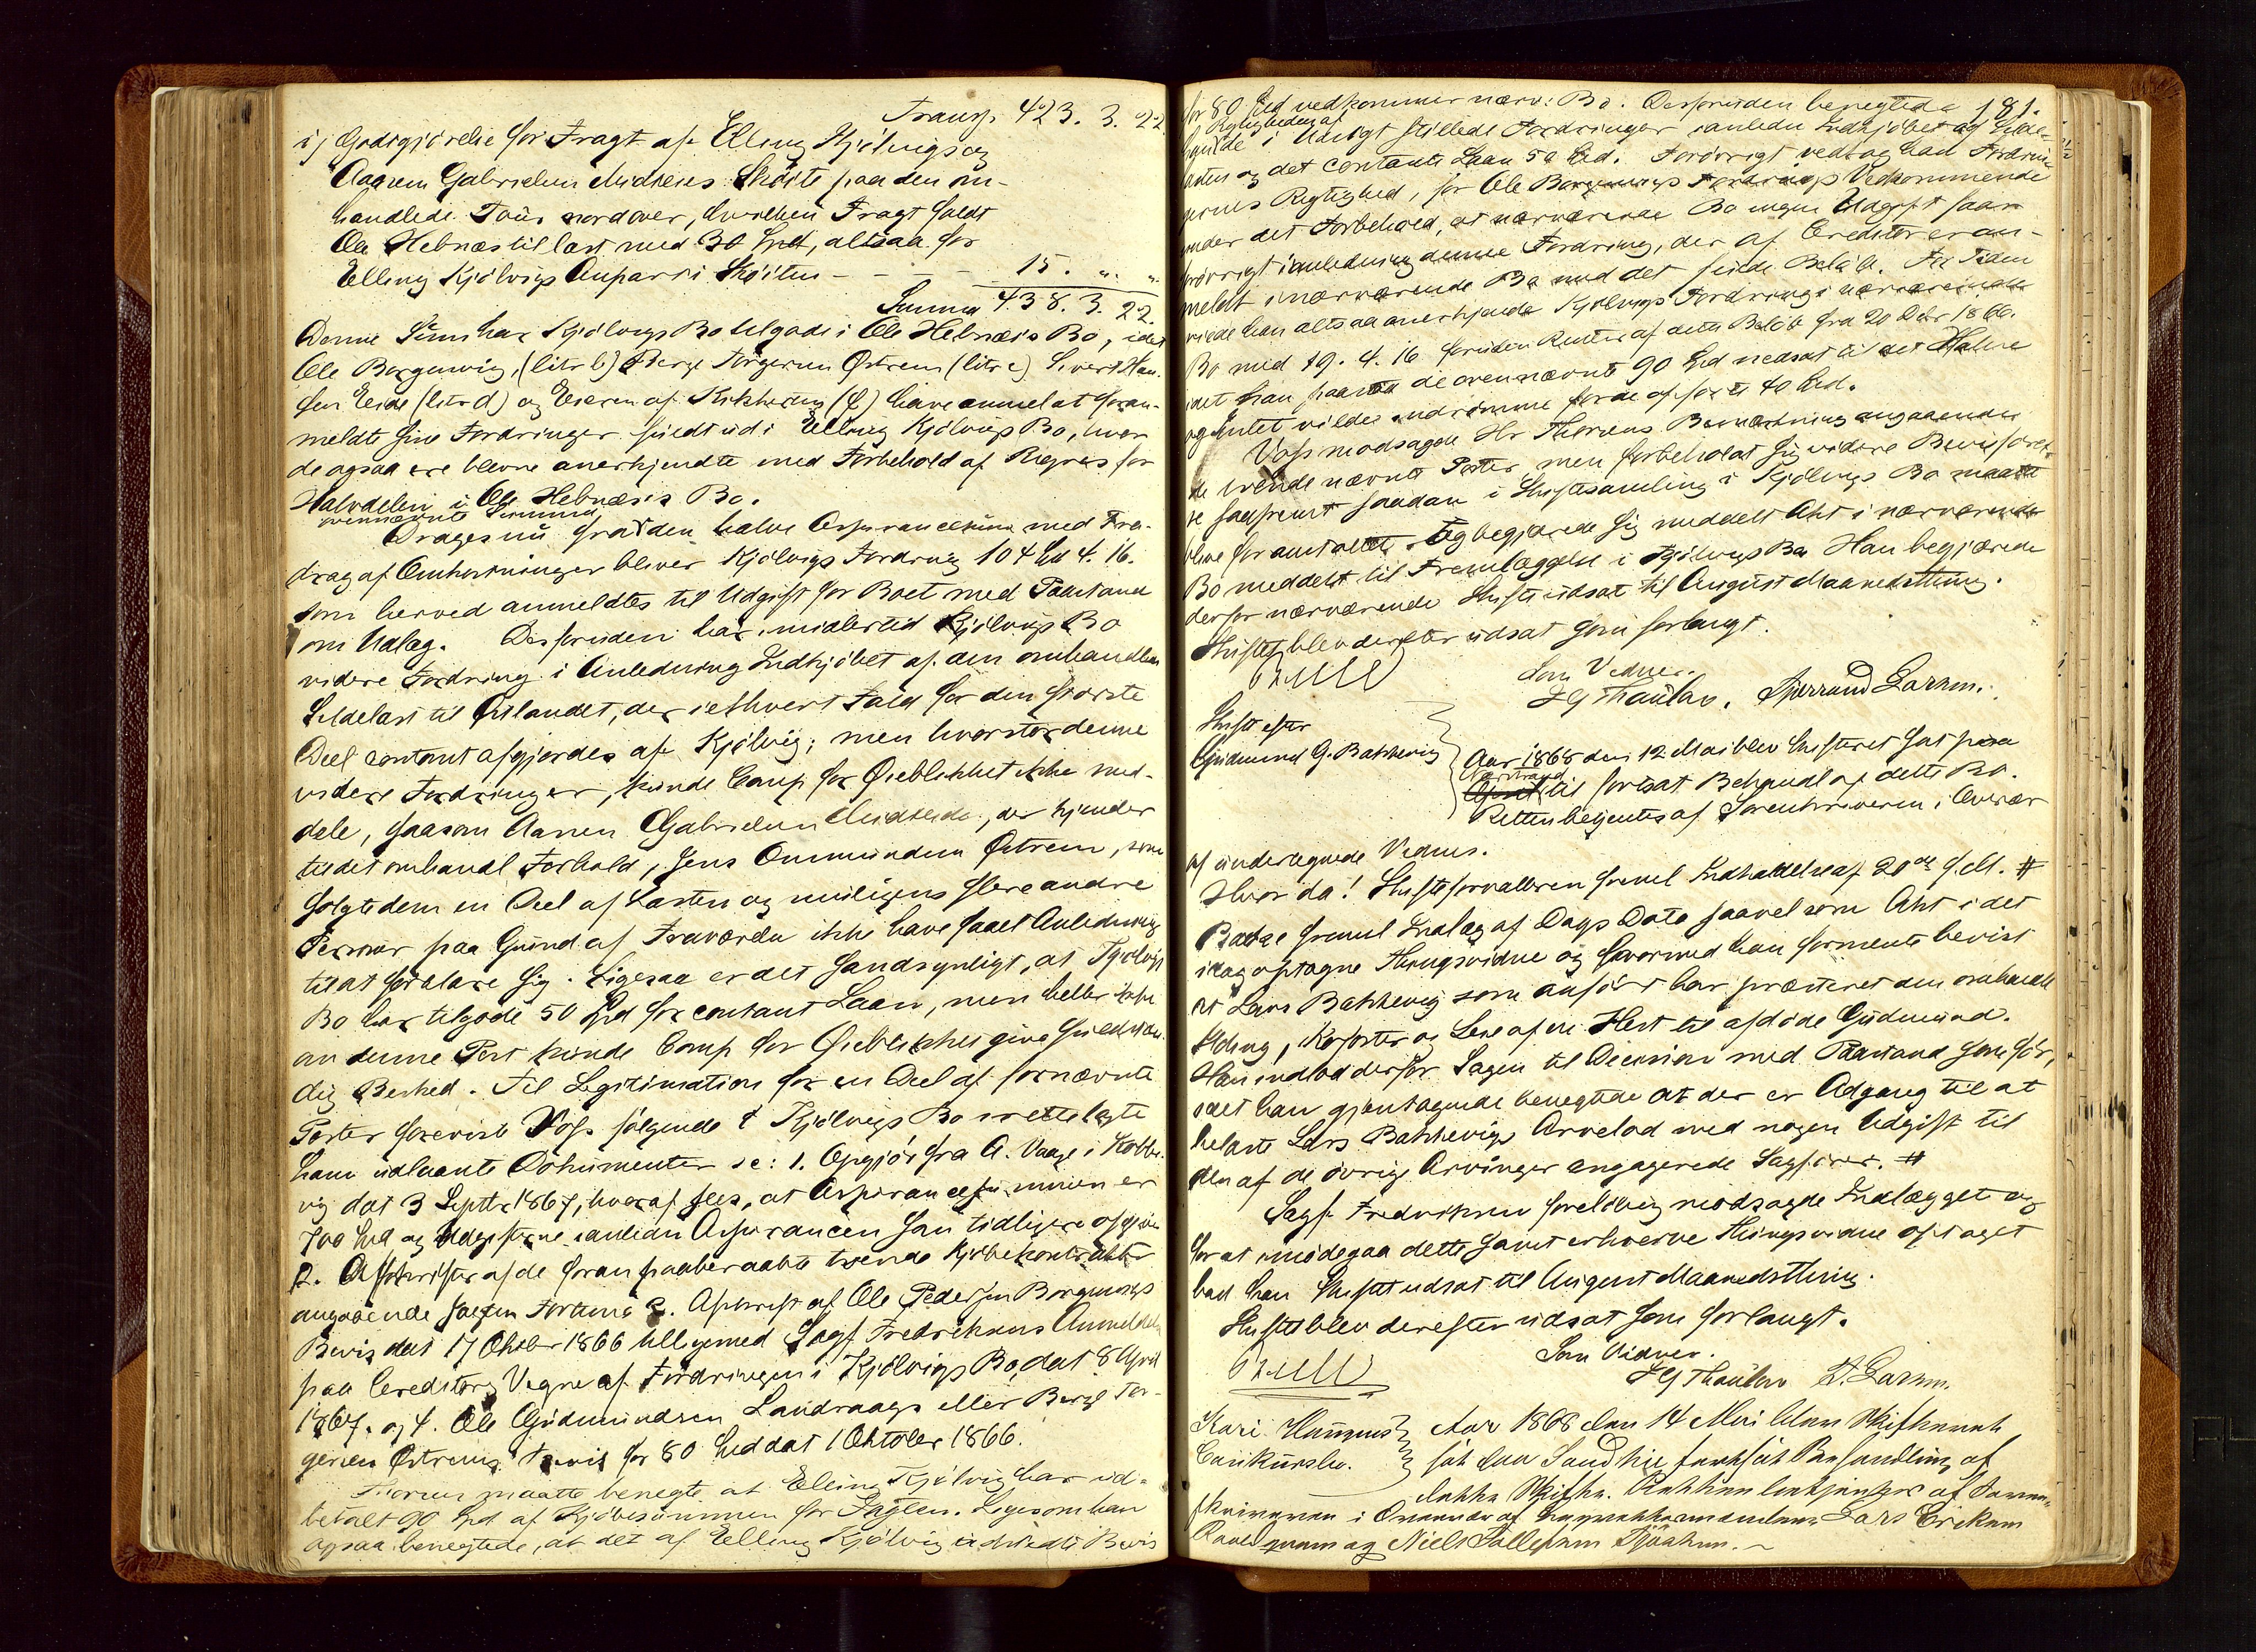 Transp. 423. 3. 22
i, Godtgjörelse for Fragt af Elling Kjölvigs og
Aanen Gabrielsen Midteies Skøite paa den om-
handlede Tour nordover, hvilken Fragt faldt
Ole Hebnæs til last med 30 Spd, altsaa for
Elling Kjölvigs Anpart i Skøiten - - - - 15. " "
Summa 438. 3. 22.
Denne Sum har Kjölvigs Bo tilgode i Ole Hebnæs's Bo, idet
Ole Borgenvig, (litr b) Berge Torgersen Østrem (litr c) Sivert Han-
sen Eide (litr d) og Eieren af (f) have anmeldt foran-
meldte sine Fordringer fuldt ud i Elling Kjölvigs Bo, hvor
de ogsaa ere blevne anerkjendte med Forbehold af Regres for
Halvdelen i Ole Hebnæs's Bo.
ovennævnte Summa
Drages nu fra den halve Assurancesum med Fra-
drag af Omkostninger bliver Kjölvigs Fordring 104 Spd 4. 16.
som herved anmeldtes til Udgift for Boet med Paastand
om Udlæg. Desforuden har imidlertid Kjölvigs Bo
videre Fordring i Anledning Indkjöbet af den omhandlede
Sildelast til Østlandet, der i ethvert Fald for den største
Deel contant afgjordes af Kjölvig; men hvor stor denne
videre Fordring er, kunde Comp for Øieblikket ikke med-
dele, saasom Aanen Gabrielsen Midteide, der kjender
til det omhandl Forhold, Jens Ommundsen Østrem, som
folgte dem en Deel af Lasten og muligens flere andre
Personer paa Grund af Fraværelse ikke have faaet Anledning
til at forklare sig. Ligesaa er det sandsynligt, at Kjölvigs
Bo har tilgode 50 Spd for contant Laan, men heller ikke
om denne Post kunde Comp for Øieblikket give fuldstæn-
dig Besked. Til Legitimation for en Deel af fornævnte
Poster foreviste Voss følgende i Kjölvigs Bo irettelagte
ham udlaante Dokumenter sc: 1. Opgjör fra A. Vaage i Kobber-
vig dat 3 Septbr 1867, hvoraf sees, at Assurancesummen er
700 Spd og Udgifterne i anledn Assurancen som tidligere opgivet
2. Afskrifter af de foran paaberaabte tvende Kjöbekontrakter
angaaende Jagten Fortuna 3. Afskrift af Ole Pedersen Borgenvigs
Bevis dat 17 Oktober 1866 tilligemed Sagf Fredriksens Anmeldelse
paa Creditors Vegne af Fordringen i Kjölvigs Bo, dat 8 April
1867. og 4. Ole Gudmundsen Landraags eller Berge Tor-
gersen Østrems Bevis for 80 Spd dat 1 Oktober 1866.
maatte benegte at Elling Kjölvig har ud-
betalt 90 Spd af Kjöbesummen for Jagten. Ligesom han
ogsaa benegtede, at det af Elling Kjölvig udstedte Bevis
181.
for 80 Spd vedkommer nærv: Bo. Desforuden benegtede
Rigtigheden af
han de i Udsigt stillede Fordringer i anledn Indkjöbet af Silde-
lasten og det contante Laan 50 Spd. Forövrigt vedtog han Fordrin-
gernes Rigtighed, for Ole Borgenvigs Fordrings Vedkommende
under det Forbehold, at nærværende Bo ingen Udgift faar
forövrigt i anledning denne Fordring, der af Creditor er an-
meldt i nærværende Bo med det fulde Belöb. For Tiden
vilde han altsaa anerkjende Kjölvigs Fordring i nærværende
Bo med 19. 4. 16 foruden Renter af dette Belöb fra 20 Octbr 1866.
idet han paastod de ovennævnte 90 Spd nedsat til det Halve
og Intet vilde indrömme for de opförte 40 Spd.
Voss modsagde Hr Bemærkning angaaende
de tvende nævnte Poster, men forbeholdt sig videre Bevisförel-
se saafremt saadan i Skiftesamling i Kjölvigs Bo maatte
blive foranstaltet. Og begjærede sig meddelt Akt i nærværende
Bo meddelt til Fremlæggelse i Kjölvigs Bo. Han begjærede
derfor nærværende Skifte udsat til August Maanedsthing.
Skiftet blev derefter udsat som forlangt.
Som Vidner.
Sjerrand Larsen.
Skift efter
Gudmund G. Bakkevig
Aar 1868 den 12 Mai blev Skifteret sat paa
Nærstrand
til fortsat Behandl af dette Bo.
Retten betjentes af Sorenskriveren i Overvær
af undertegnede Vidner.
Hvor da! Skifteforvalteren freml Indkaldelse af 20de f. M. #
Bakke freml Indlæg af Dags Dato saavelsom Akt i det
idag optagne Thingsvidne og hvormed han formente bevist
at Lars Bakkevig som anfört har præsteret den omhandl
Holdning, Kofoster og Leie af en Hest til afdöde Gudmund.
Han indlod derfor Sagen til Decision med Paastand som för,
idet han gjentagende benegtede at der er Adgang til at
belaste Lars Bakkevigs Arvelod med nogen Udgift til
den af de övrige Arvinger engagerede Sagförer. #
Sagf Fredriksen forelöbig modsagde Indlægget og
for at imödegaa dette samt erhverve Thingsvidne optaget
bad han Skiftet udsat til August Maanedsthing.
Skiftet blev derefter udsat som forlangt.
Som Vidner.
S. Larsen.
Kari Hannus
Conkursbo.
Aar 1868 den 14 Mai blev Skifteret
sat paa Sandeie fortsat Behandling af
dette Skifte. Retten betjentes af Soren-
skriveren i Overvær af Lars Eriksen
og Niels Tollefsen